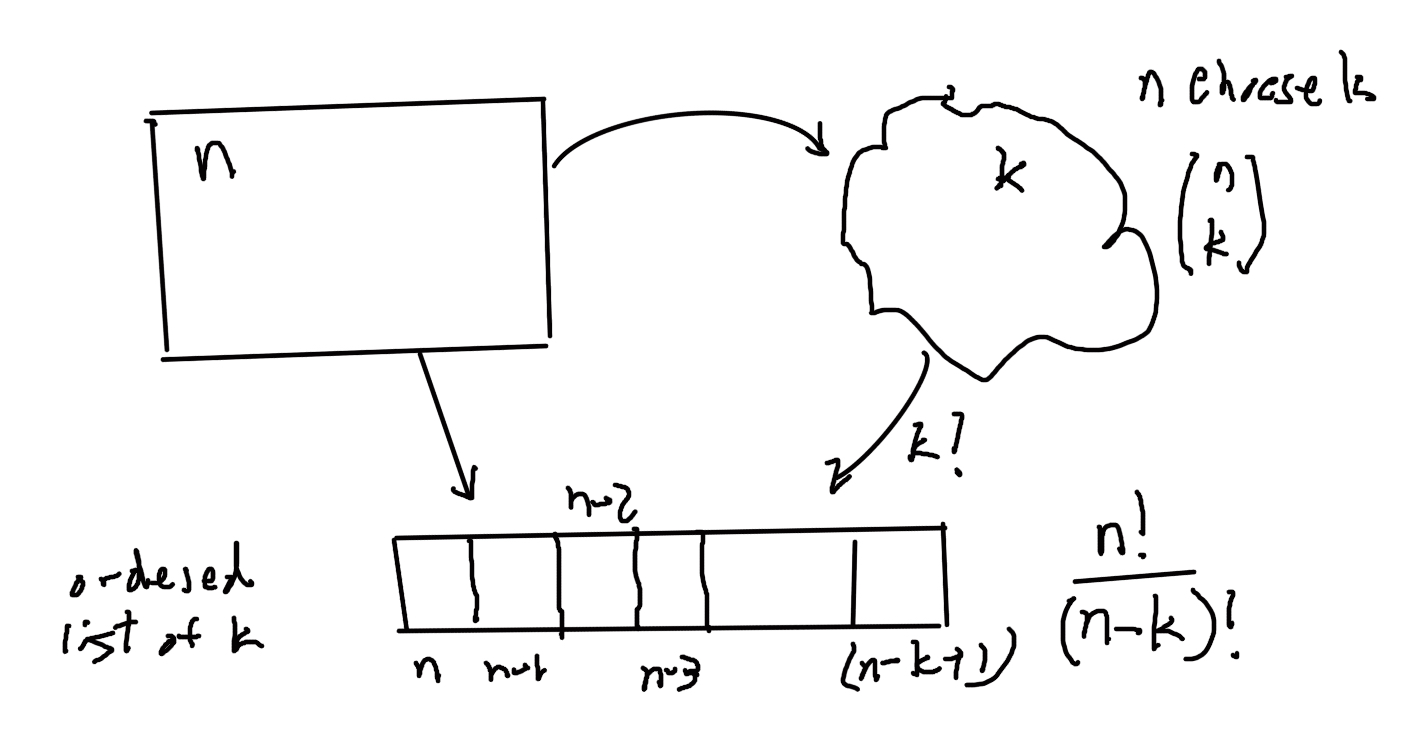 n choose k
n
k
(n
k)
k!
n-2
n!
(n-k)!
ordered
list of k
n n-1 n-3 (n-k+1)